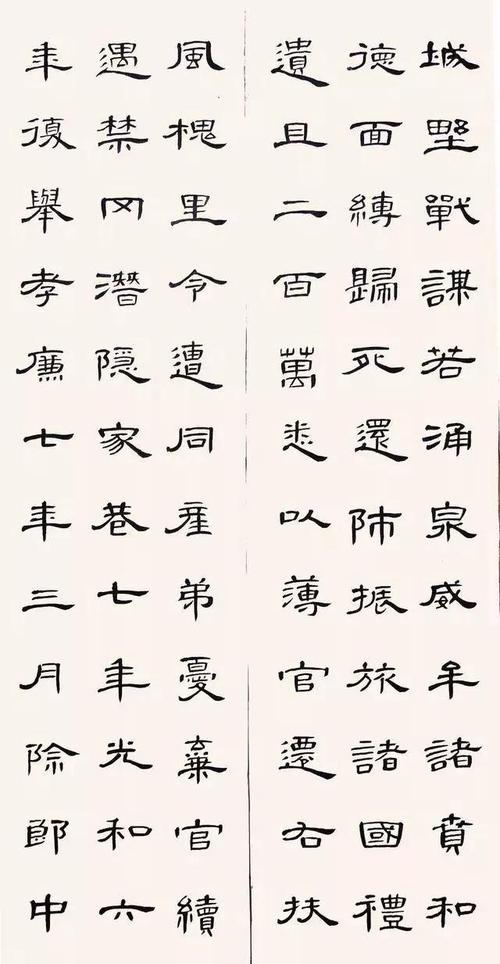 城壄戰謀若涌泉威牟諸賁和
德面縛歸死還師振旅諸國禮
遺且二百萬悉以薄官遷右扶
風槐里令遭同産弟憂棄官續
遇禁冈潛隱家巷七年光和六
年復舉孝廉七年三月除郎中